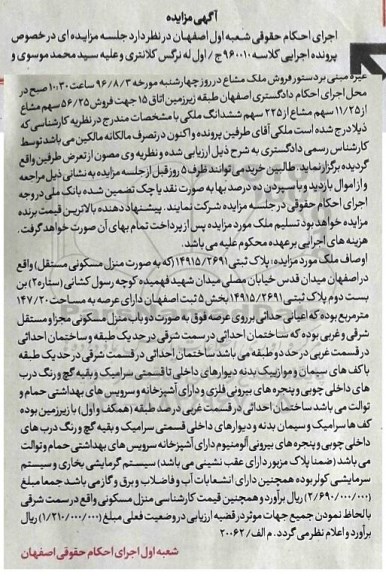 آگهی مزایده
اجرای احکام حقوقی شعبه اول اصفهان در نظر دارد جلسه مزایده ای در خصوص
پرونده اجرایی کلاسه ۹۶۰۰۱۰ ج/ اول له نرگس کلانتری و علیه سید محمد موسوی و
غیره مبنی بر دستور فروش ملک مشاع در روز چهارشنبه مورخه ۹۶/۸/۳ ساعت ۱۰:۳۰ صبح در
محل اجرای احکام دادگستری اصفهان طبقه زیرزمین اتاق ۱۵ جهت فروش ۵۶/۲۵ سهم مشاع
از ۱۱/۲۵ سهم مشاع از ۲۲۵ سهم ششدانگ ملکی با مشخصات مندرج در نظریه کارشناسی که
ذیلا درج شده است ملکی آقای طرفین پرونده و اکنون در تصرف مالکانه مالکین می باشد توسط
کارشناس رسمی دادگستری به شرح ذیل ارزیابی شده و نظریه وی مصون از تعرض طرفین واقع
گردیده برگزار نماید. طالبین خرید می توانند ظرف ۵ روز قبل از جلسه مزایده به نشانی ذیل مراجعه
و از اموال بازدید و با سپردن ده درصد بها به صورت نقد یا چک تضمین شده بانک ملی در وجه
اجرای احکام حقوقی در جلسه مزایده شرکت نمایند. پیشنهاد دهنده بالاترین قیمت برنده
مزایده خواهد بود تسلیم ملک مورد مزایده پس از پرداخت تمام بهای آن صورت خواهد گرفت.
هزینه های اجرایی بر عهده محکوم علیه می باشد.
اوصاف ملک مورد مزایده: پلاک ثبتی ۱۴۹۱۵/۲۶۹۱ (که به صورت منزل مسکونی مستقل) واقع
در اصفهان میدان قدس خیابان مصلی میدان شهید فهمیده کوچه رسول کشانی (ستاره ۲) بن
بست دوم پلاک ثبتی ۱۴۹۱۵/۲۶۹۱ بخش ۵ ثبت اصفهان دارای عرصه به مساحت ۱۴۷/۲۰
مترمربع بوده که اعیانی حداثی بر روی عرصه فوق به صورت دو باب منزل مسکونی مجزا و مستقل
شرقی و غربی بوده که ساختمان احداثی در سمت شرقی در حد یک طبقه و ساختمان احداثی
در قسمت غربی در حد دو طبقه می باشد ساختمان احداثی در قسمت شرقی در حد یک طبقه
با کف های سیمان و موزاییک بدنه دیوارهای داخلی تا قسمتی سرامیک و بقیه گچ و رنگ درب
های داخلی چوبی و پنجره های بیرونی فلزی و دارای آشپزخانه و سرویس های بهداشتی حمام و
توالت می باشد ساختمان احداثی در قسمت غربی در صد طبقه (همکف و اول) با زیرزمین بوده
کف ها سرامیک و سیمان بدنه و دیوارهای داخلی قسمتی سرامیک و بقیه گچ و رنگ درب های
داخلی چوبی و پنجره های بیرونی آلومنیوم دارای آشپزخانه سرویس های بهداشتی حمام و توالت
می باشد (ضمنا پلاک مزبور دارای عقب نشینی می باشد) سیستم گرمایشی بخاری و سیستم
سرمایشی کولر بوده همچنین دارای انشعابات آب و فاضلاب و برق و گاز می باشد جمعا مبلغ
(۲/۶۹۰/۰۰۰/۰۰۰) ریال برآورد و همچنین قیمت کارشناسی منزل مسکونی واقع در سمت شرقی
بالحاظ نمودن جمیع جهات موثر در قضیه ارزیابی در وضعیت فعلی مبلغ (۱/۲۱۰/۰۰۰/۰۰۰) ریال
برآورد و اعلام نظر می گردد. م الف/ ۲۰۰۶۲
شعبه اول اجرای احکام حقوقی اصفهان